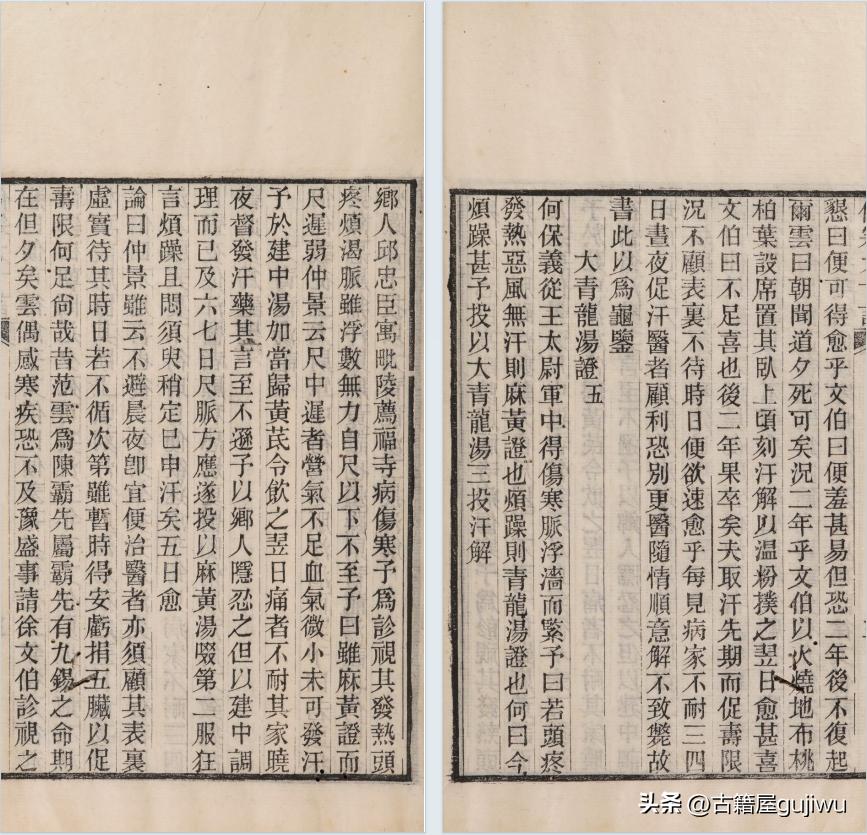 鄉人邱忠臣寓毗陵薦福寺病傷寒予爲診視其發熱頭
疼煩渴脈雖浮數無力自尺以下不至予曰雖麻黃證而
尺遲弱仲景云尺中遲者營氣不足血氣微小未可發汗
予於建中湯加當歸黃芪令飲之翌日痛者不耐其家曉
夜督發汗藥其言至不遜予以鄉人隱忍之但以建中調
理而已及六七日尺脈方應遂投以麻黃湯啜第二服狂
言煩躁且悶須臾稍定已申汗矣五日愈
論曰仲景雖云不避晨夜卽宜便治醫者亦須顧其表裏
虛實待其時日若不循次第雖暫時得安虧捐五臟以促
壽限何足尙哉昔范雲爲陳霸先屬霸先有九錫之命期
在但夕矣雲偶感寒疾恐不及豫盛事請徐文伯診視之
懇曰便可得愈乎文伯曰便羞甚易但恐二年後不復起
爾雲曰朝聞道夕死可矣況二年乎文伯以火燒地布桃
柏葉設席置其臥上頃刻汗解以温粉撲之翌日愈甚喜
文伯曰不足喜也後二年果卒矣夫取汗先期而促壽限
況不顧表裏不待時日便欲速愈乎每見病家不耐三四
日晝夜促汗醫者顧利恐別更醫隨情順意解不致斃故
書此以爲龜鑒
大青龍湯證五
何保義從王太尉軍中得傷寒脈浮濇而緊予曰若頭疼
發熱惡風無汗則麻黃證也煩躁則青龍湯證也何曰今
煩躁甚予投以大青龍湯三投汗解
头条 @古籍屋gujiwu